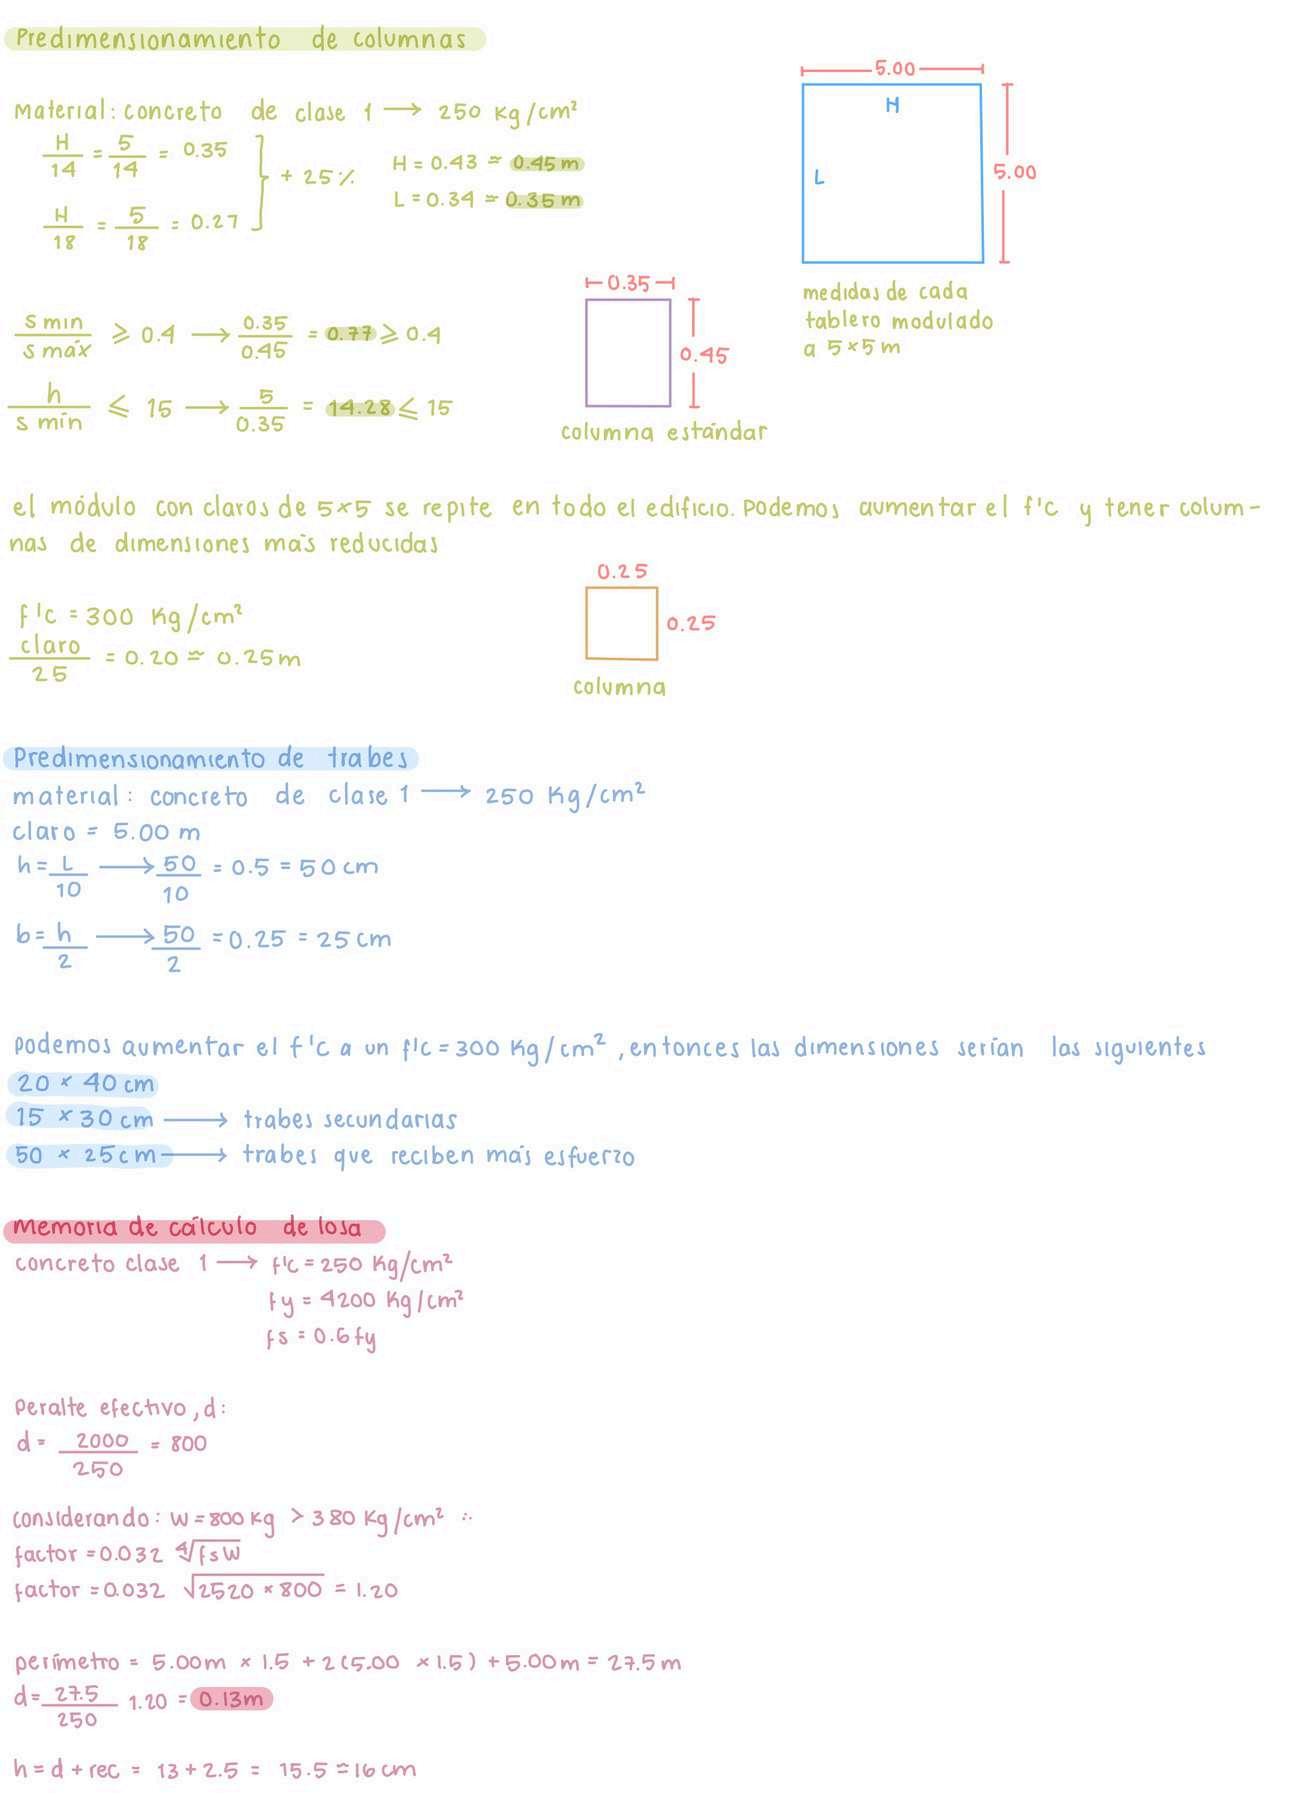 Predimensionamiento de columnas
5.00
Material: concreto de clase 1 → 250 Kg/cm²
H
H/14 = 5/14 = 0.35
H/18 = 5/18 = 0.27
} + 25 %
H = 0.43 ≃ 0.45 m
L = 0.34 ≃ 0.35 m
L
5.00
medidas de cada
tablero modulado
a 5×5 m
s mín / s máx ≥ 0.4 → 0.35/0.45 = 0.77 ≥ 0.4
h / s mín ≤ 15 → 5/0.35 = 14.28 ≤ 15
0.35
0.45
columna estándar
el módulo con claros de 5×5 se repite en todo el edificio. Podemos aumentar el f'c y tener colum-
nas de dimensiones más reducidas
f'c = 300 Kg/cm²
claro/25 = 0.20 ≃ 0.25 m
0.25
0.25
columna
Predimensionamiento de trabes
material: concreto de clase 1 → 250 Kg/cm²
claro = 5.00 m
h = L/10 → 50/10 = 0.5 = 50 cm
b = h/2 → 50/2 = 0.25 = 25 cm
Podemos aumentar el f'c a un f'c = 300 Kg/cm², entonces las dimensiones serían las siguientes
20 × 40 cm
15 × 30 cm → trabes secundarias
50 × 25 cm → trabes que reciben más esfuerzo
Memoria de cálculo de losa
concreto clase 1 → f'c = 250 Kg/cm²
fy = 4200 Kg/cm²
fs = 0.6 fy
Peralte efectivo, d:
d = 2000/250 = 800
considerando: W = 800 Kg > 380 Kg/cm² ∴
factor = 0.032 ∜fsW
factor = 0.032 √2520 × 800 = 1.20
perímetro = 5.00m × 1.5 + 2(5.00 × 1.5) + 5.00 m = 27.5 m
d = 27.5/250 1.20 = 0.13m
h = d + rec = 13 + 2.5 = 15.5 ≃ 16 cm